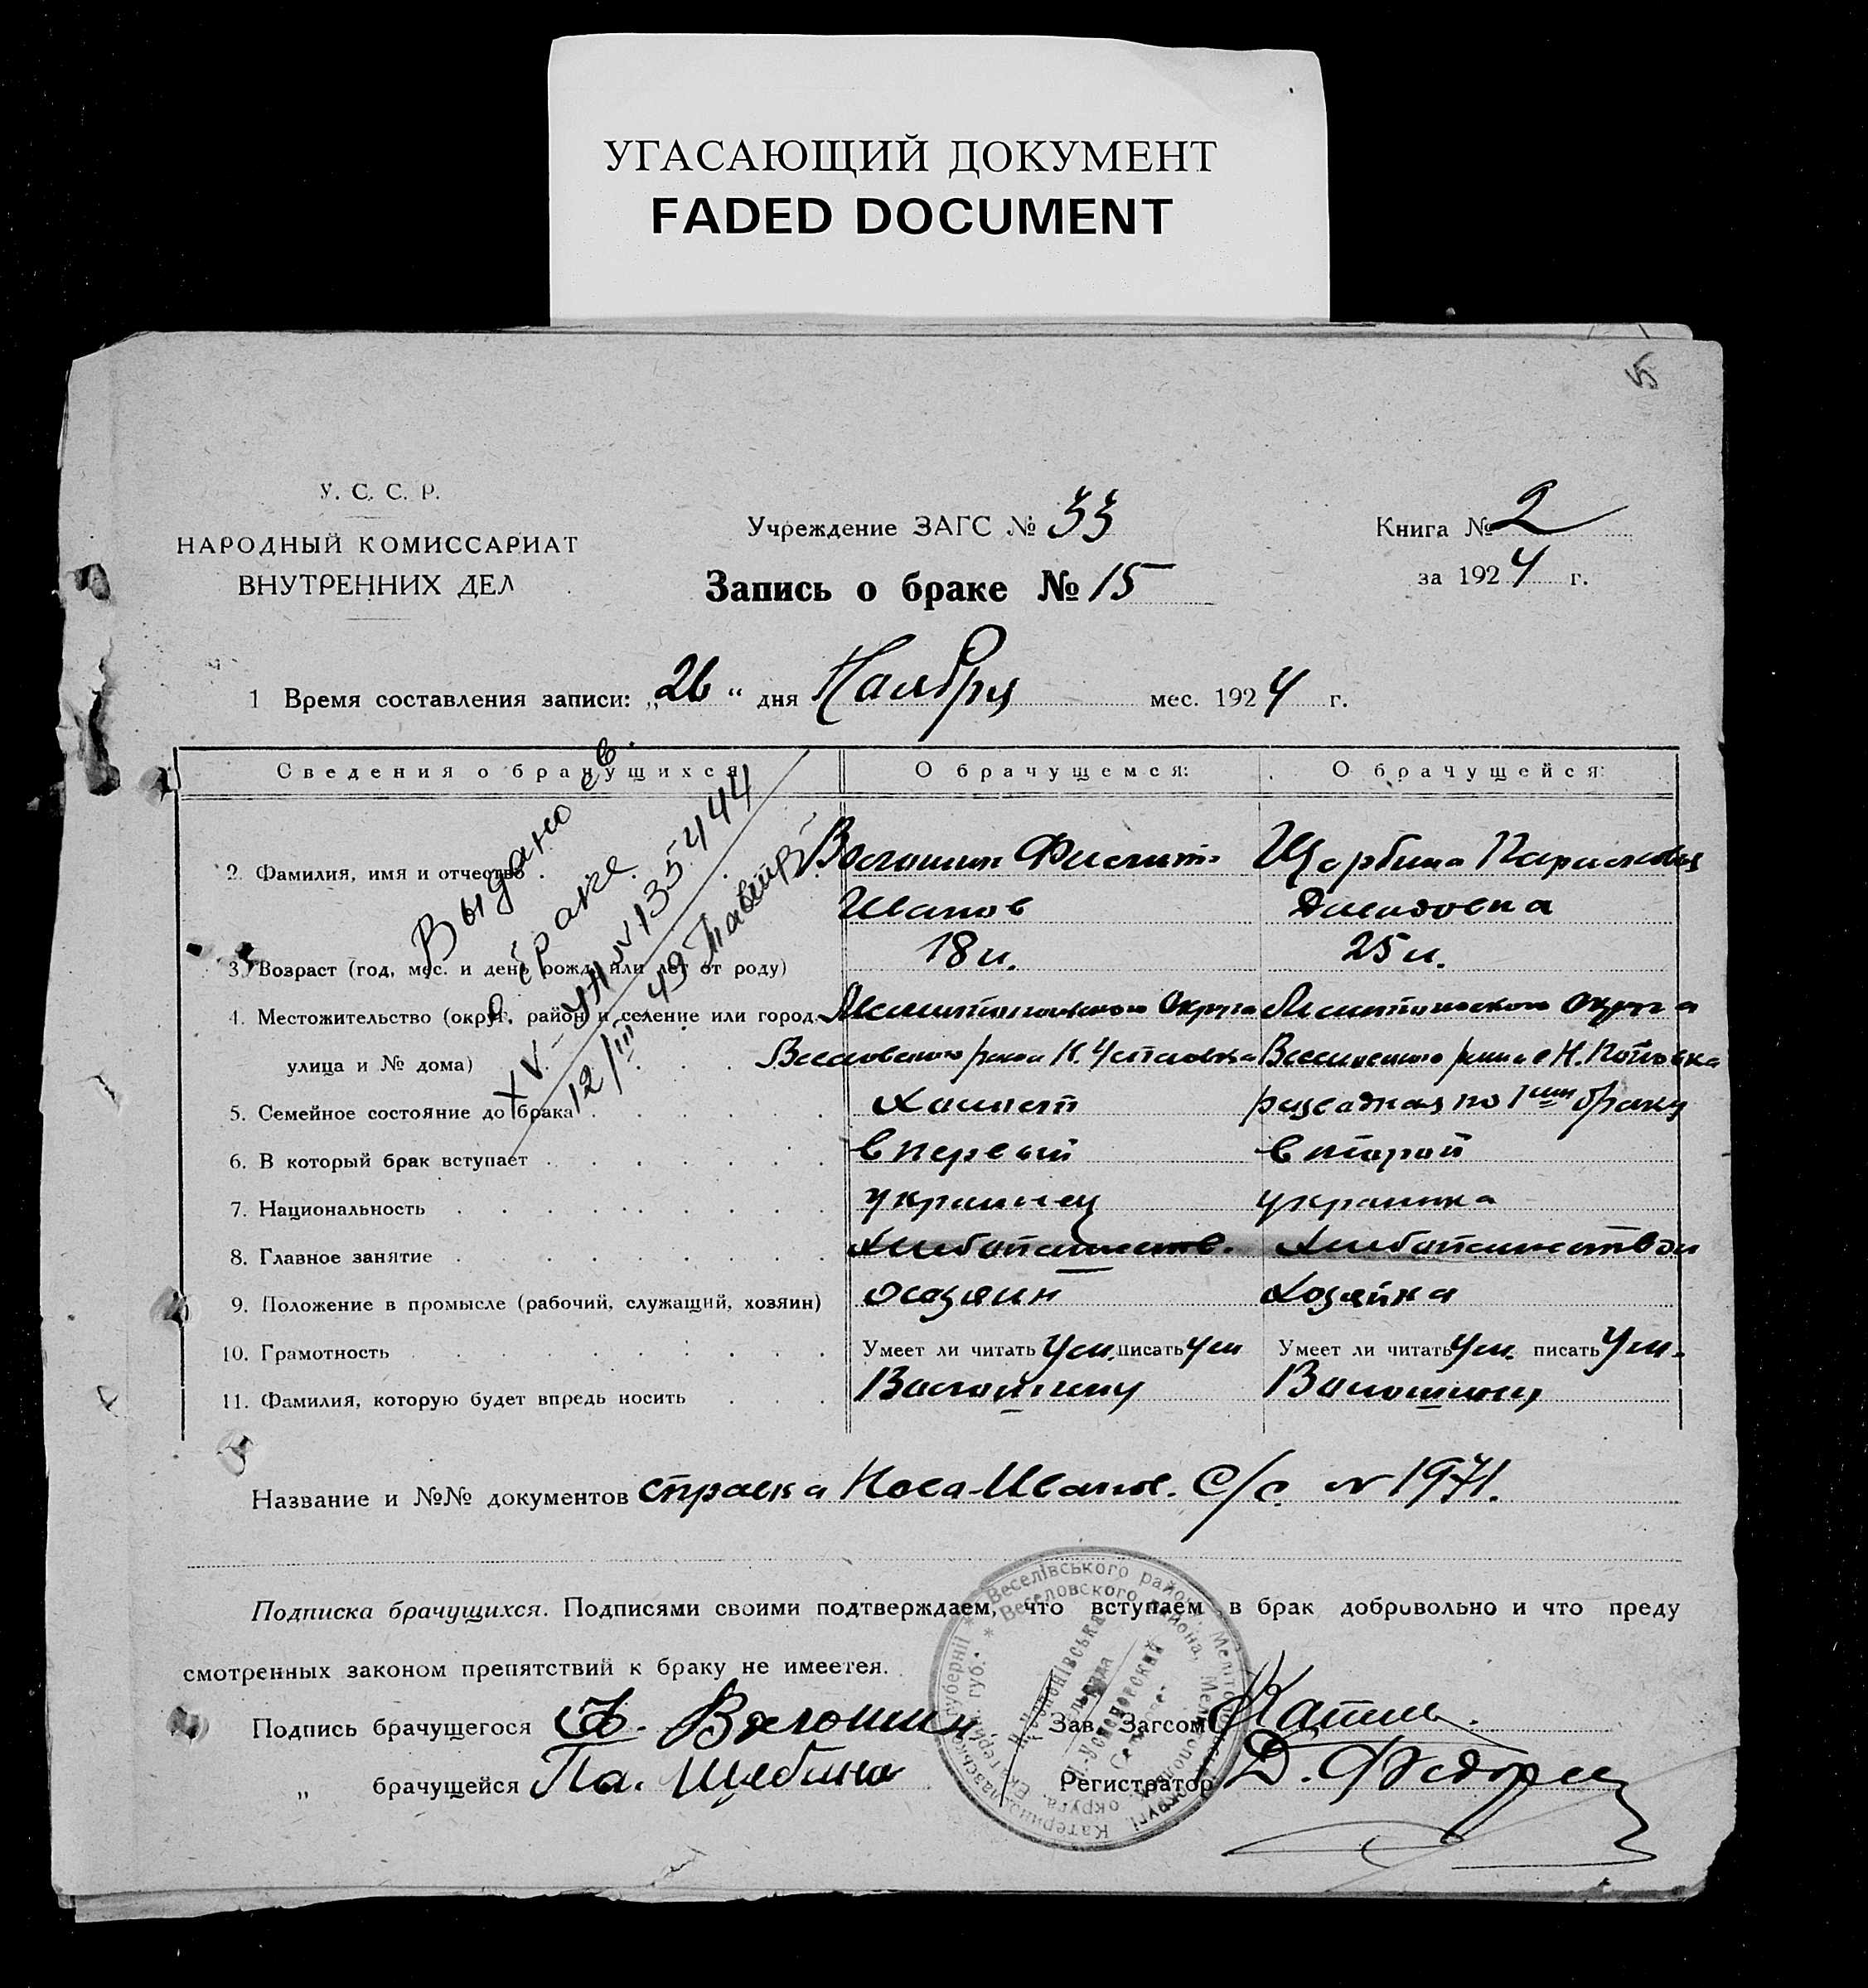 УГАСАЮЩИЙ ДОКУМЕНТ
FADED DOCUMENT
У. С. С. Р.
НАРОДНЫЙ КОМИССАРИАТ
ВНУТРЕННИХ ДЕЛ
Учреждение ЗАГС № 33
Запись о браке № 15
Книга № 2
за 1924 г.
1 Время составления записи: „26“ дня Ноября мес. 1924 г.
Сведения о брачущихся
О брачущемся:
О брачущейся:
Выдано св.
о браке
XV-УН № 135444
12/III 49
2. Фамилия, имя и отчество Волошин Филип Щербина Параскева
Иванов Давидовна
3. Возраст (год, мес. и день рожд. или лет от роду) 18 л. 25 л.
4. Местожительство (округ, район и селение или город, Мелитопольского Округа Мелитопольского Округа
улица и № дома) Веселовского района Н. Успеновка Веселовского района Н.
5. Семейное состояние до брака Холост разводная по 1 браку
6. В который брак вступает в первый второй
7. Национальность украинец украинка
8. Главное занятие Хлебопашеств. Хлебопашество
9. Положение в промысле (рабочий, служащий, хозяин) хозяин Хозяйка
10. Грамотность Умеет ли читать Ум. писать Ум Умеет ли читать Ум. писать Ум.
11. Фамилия, которую будет впредь носить Волошину Волошину
Название и №№ документов справка Ново-Иванов. С/с. № 1971.
Подписка брачущихся. Подписями своими подтверждаем, что вступаем в брак добровольно и что преду
смотренных законом препятствий к браку не имеется.
Подпись брачущегося Ф. Волошин Зав. Загсом
„ брачущейся Па. Щебина Регистратор Д.
Катеринославської губернії * Веселівського району, Мелітопольськ. округи
Екатерин. губ. * Веселовского района, Мелитопольск. округа
Н.-Успенівська
сільрада
Н.-Успеновский
Сельсовет